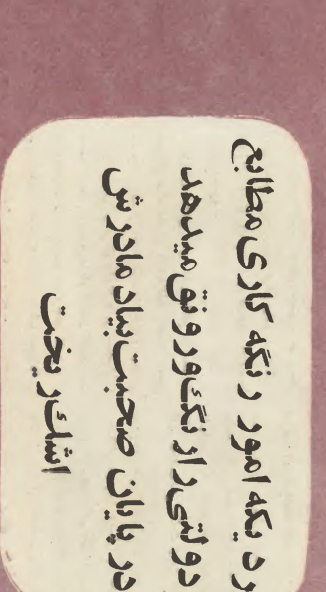 ردیکه امور رنگه کاری مطابع
دولتی را رنگ و رونق میدهد
در پایان صحبت بیاد مادرش
اشک ریخت